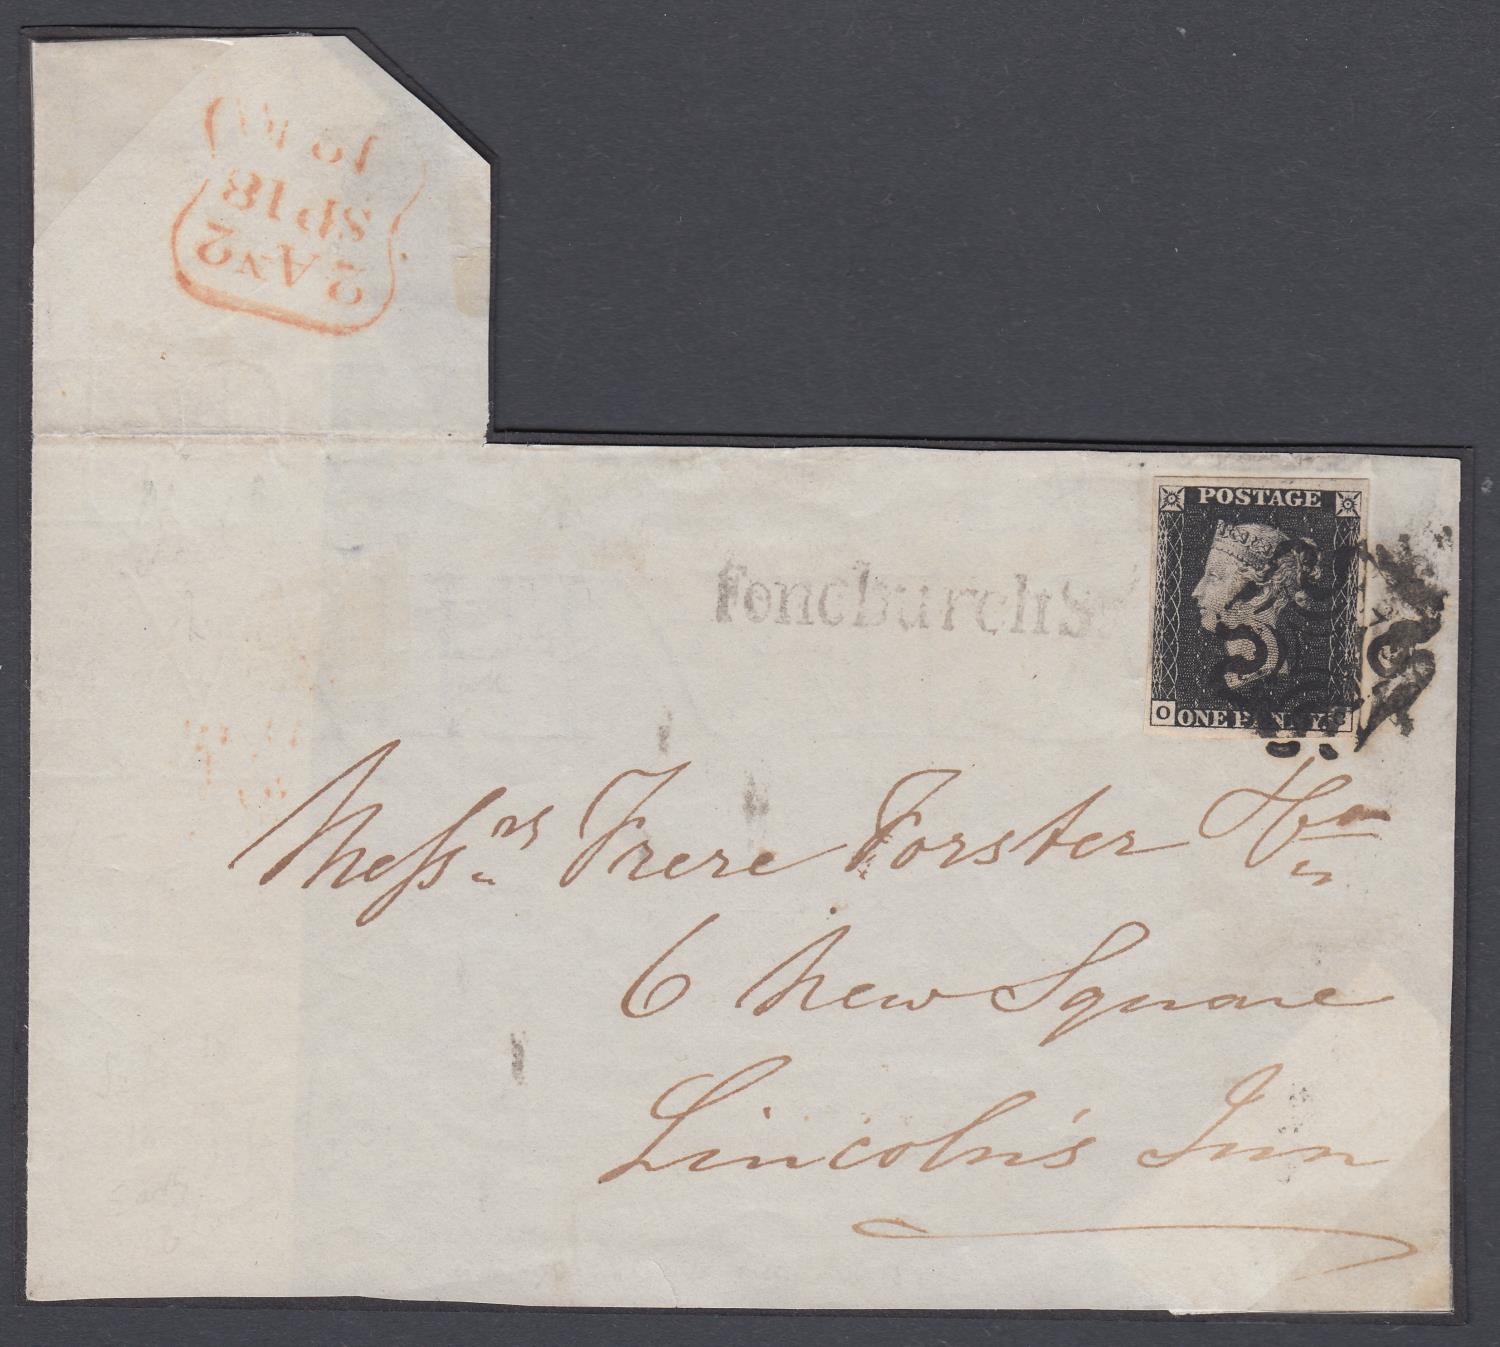 2 AN 2
SP 18
FenchurchSt
POSTAGE
O
ONE PENNY
Messrs Frere Forster & Co
6 New Square
Lincoln's Inn